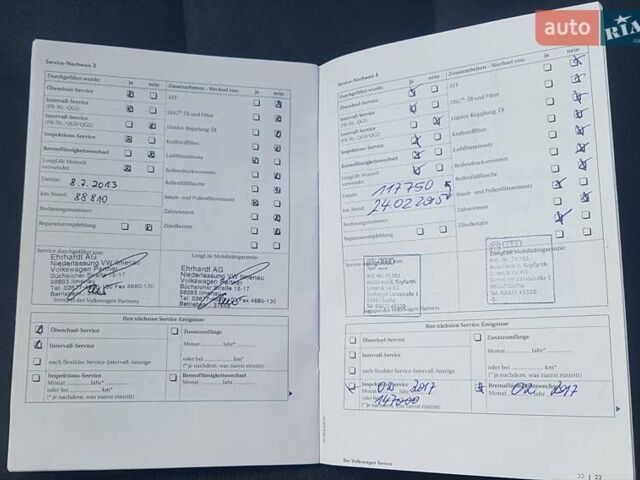 auto
RIA
Service-Nachweis 3
Durchgeführt wurde: ja nein Zusatzarbeiten - Wechsel von: ja nein
Ölwechsel-Service ATF
Intervall-Service
(PR-Nr.: QG1) DSG®: Öl und Filter
Intervall-Service
(PR-Nr.: QG0/QG2) Haldex-Kupplung Öl
Inspektions-Service Kraftstofffilter
Bremsflüssigkeitswechsel Luftfiltereinsatz
LongLife Motoröl
verwendet Reifendruckensoren
Datum: 8.7.2013 Reifenfüllflasche
km-Stand: 88810 Staub- und Pollenfiltereinsatz
Rechnungsnummer: Zahnriemen
Reparaturempfehlung Zündkerzen
Service durchgeführt am: LongLife Mobilitätsgarantie:
Ehrhardt AG
Niederlassung VW Ilmenau
Volkswagen Partner
Bücheloher Straße 15-17
98693 Ilmenau
Ehrhardt AG
Niederlassung VW Ilmenau
Volkswagen Partner
Bücheloher Straße 15-17
98693 Ilmenau
Stempel des Volkswagen Partners
Ihre nächsten Service-Ereignisse
Ölwechsel-Service Zusatzumfänge
Intervall-Service Monat Jahr*
nach flexibler Service-Intervall-Anzeige oder bei km*
(* je nachdem, was zuerst eintritt)
Inspektions-Service Bremsflüssigkeitswechsel
Monat Jahr* Monat Jahr
oder bei km*
(* je nachdem, was zuerst eintritt)
Service-Nachweis 4
Durchgeführt wurde: ja nein Zusatzarbeiten - Wechsel von: ja nein
Ölwechsel-Service ATF
Intervall-Service
(PR-Nr.: QG1) DSG®: Öl und Filter
Intervall-Service
(PR-Nr.: QG0/QG2) Haldex-Kupplung Öl
Inspektions-Service Kraftstofffilter
Bremsflüssigkeitswechsel Luftfiltereinsatz
LongLife Motoröl
verwendet Reifendruckensoren
Datum: 117750 Reifenfüllflasche
km-Stand: 24.02.2015 Staub- und Pollenfiltereinsatz
Rechnungsnummer: Zahnriemen
Reparaturempfehlung Zündkerzen
LongLife Mobilitätsgarantie:
Stempel des Volkswagen Partners
Ihre nächsten Service-Ereignisse
Ölwechsel-Service Zusatzumfänge
Intervall-Service Monat Jahr*
nach flexibler Service-Intervall-Anzeige oder bei km*
(* je nachdem, was zuerst eintritt)
Inspektions-Service Bremsflüssigkeitswechsel
Monat 02 2017 Monat 02 Jahr 2017
oder bei 147000
(* je nachdem, was zuerst eintritt)
Der Volkswagen Service
22 23